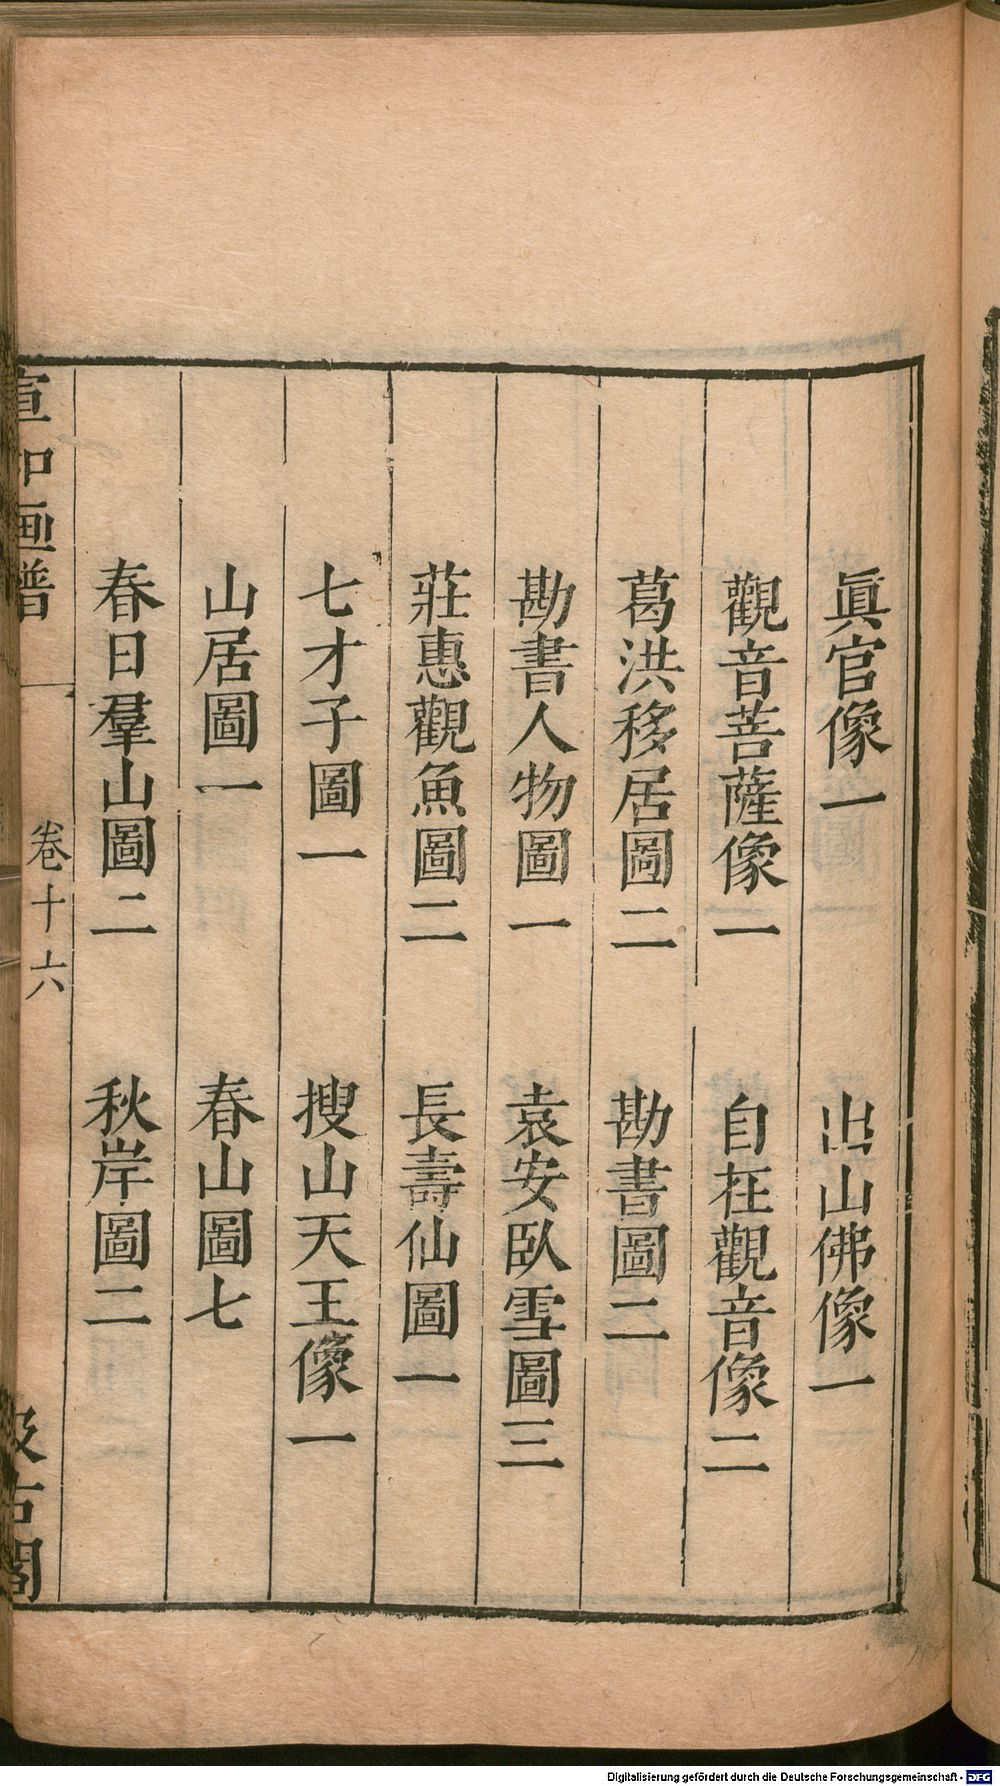 眞官像一 出山佛像一
觀音菩薩像一 自在觀音像二
葛洪移居圖二 勘書圖二
勘書人物圖一 袁安臥雪圖三
莊惠觀魚圖二 長壽仙圖一
七才子圖一 搜山天王像一
山居圖一 春山圖七
春日羣山圖二 秋岸圖二
宣和画譜 卷十六 汲古閣
Digitalisierung gefördert durch die Deutsche Forschungsgemeinschaft - DFG